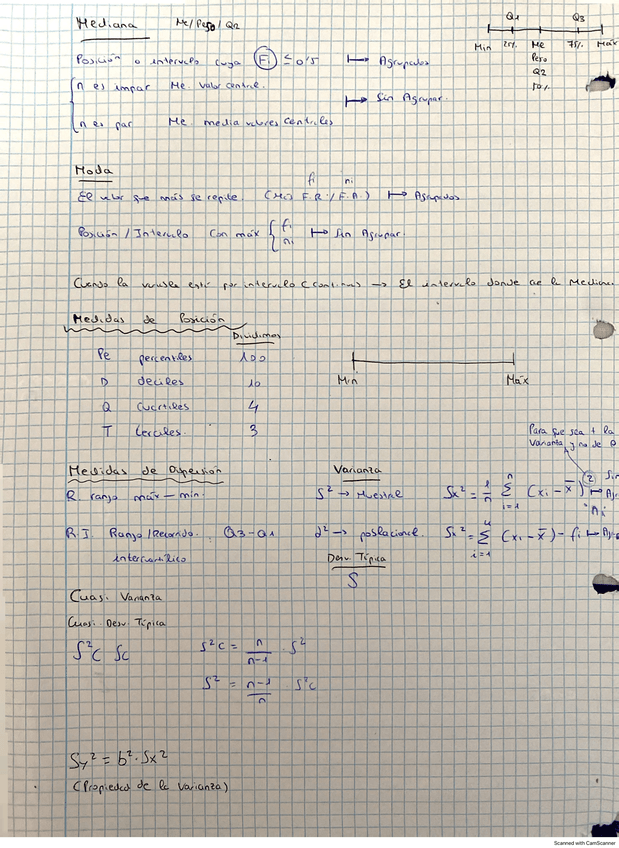 Mediana Me/Pe50/Q2
Q1 Q3
Min 25% Me 75% Máx
Pe50
Q2
50%
Posición o intervalo cuya Fi ≤ 0'5 ↦ Agrupados
n es impar Me. valor central.
↦ Sin Agrupar.
n es par Me. media valores centrales
Moda
fi ni
El valor que más se repite. (Mo) F.R./F.A.) ↦ Agrupados
Posición / Intervalo con máx { fi ni ↦ Sin Agrupar.
Cuando la variable esté por intervalo (continua) → El intervalo donde cae la Mediana.
Medidas de Posición
Dividimos
Pe percentiles 100
D deciles 10
Q cuartiles 4
T terciles. 3
Min Máx
Para que sea + la
Varianza y no de 0
Medidas de Dispersión Varianza
R rango máx - min. S² → Muestral Sx² = 1/n Σ i=1 n (xi - x̄)² ↦
R.I. Rango/Recorrido. Q3-Q1 → poblacional. Sx² = Σ i=1 (xi - x̄) - fi ↦
intercuartílico Desv. Típica
S
Cuasi. Varianza
Cuasi. Desv. Típica
S²c Sc S²c = n/n-1 . S²
S² = n-1/n S²c
Sy² = b² . Sx²
(Propiedad de la varianza)
Scanned with CamScanner